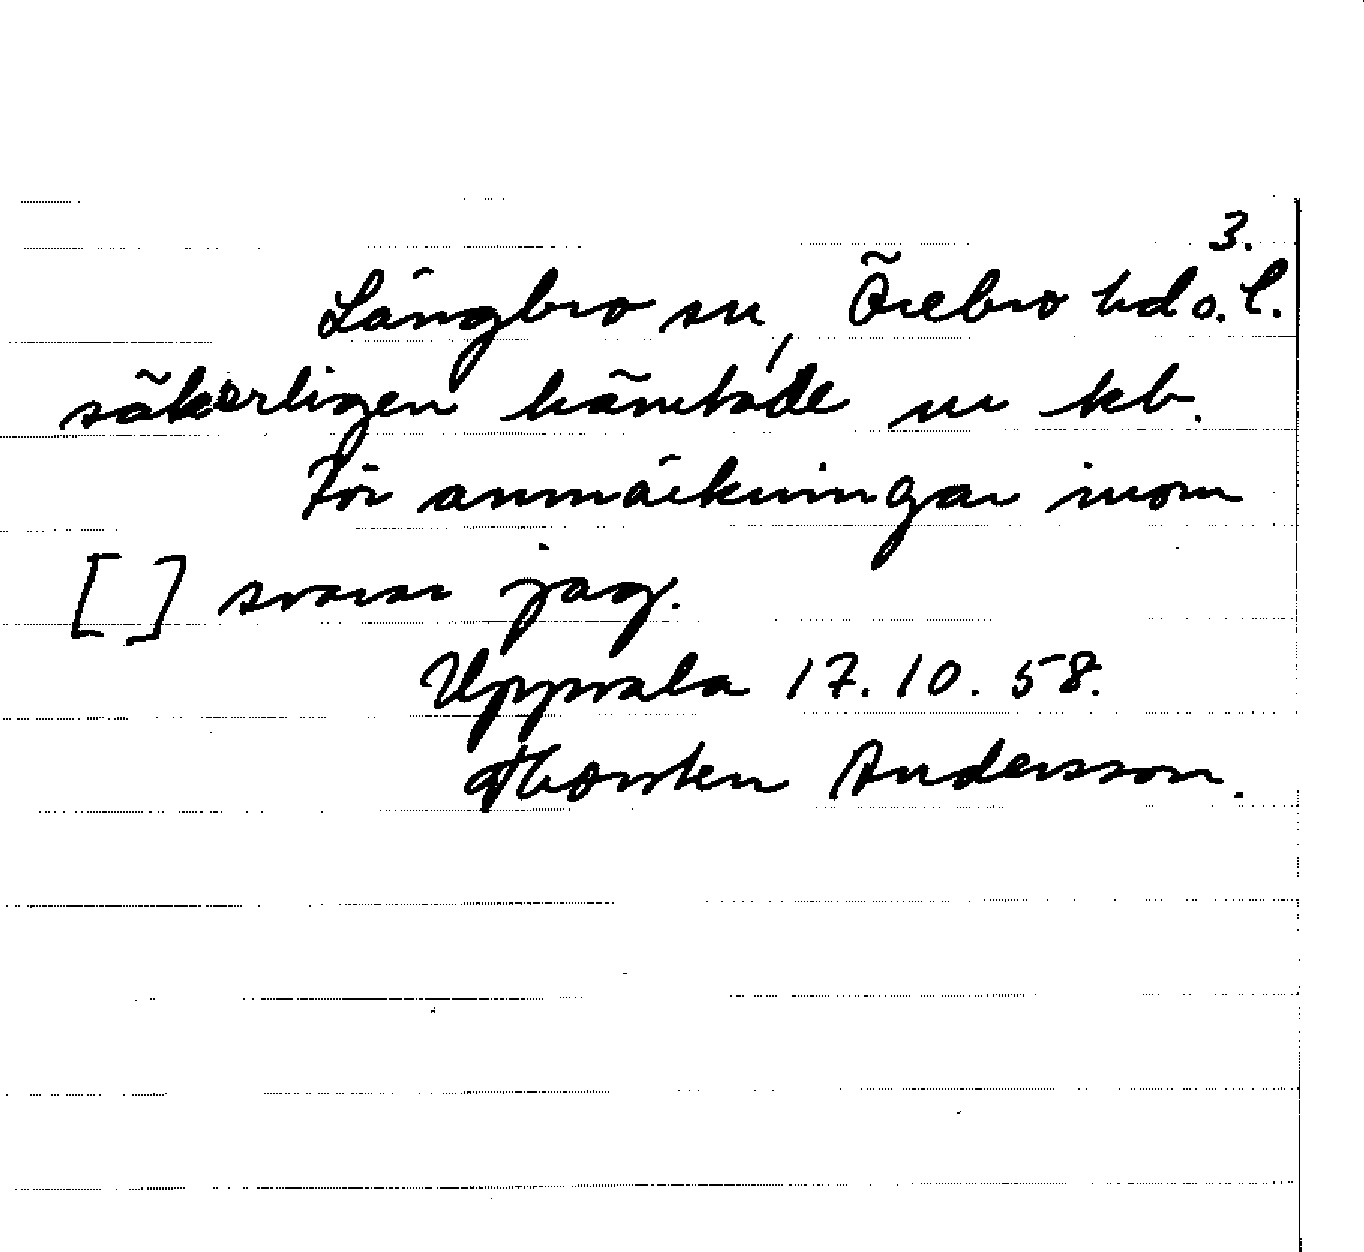 3.
Långbro sn, Örebro hd o. l.
säkerligen hämtade ur kb.
För anmärkningar inom
[ ] svarar jag.
Uppsala 17.10.58.
Thorsten Andersson.